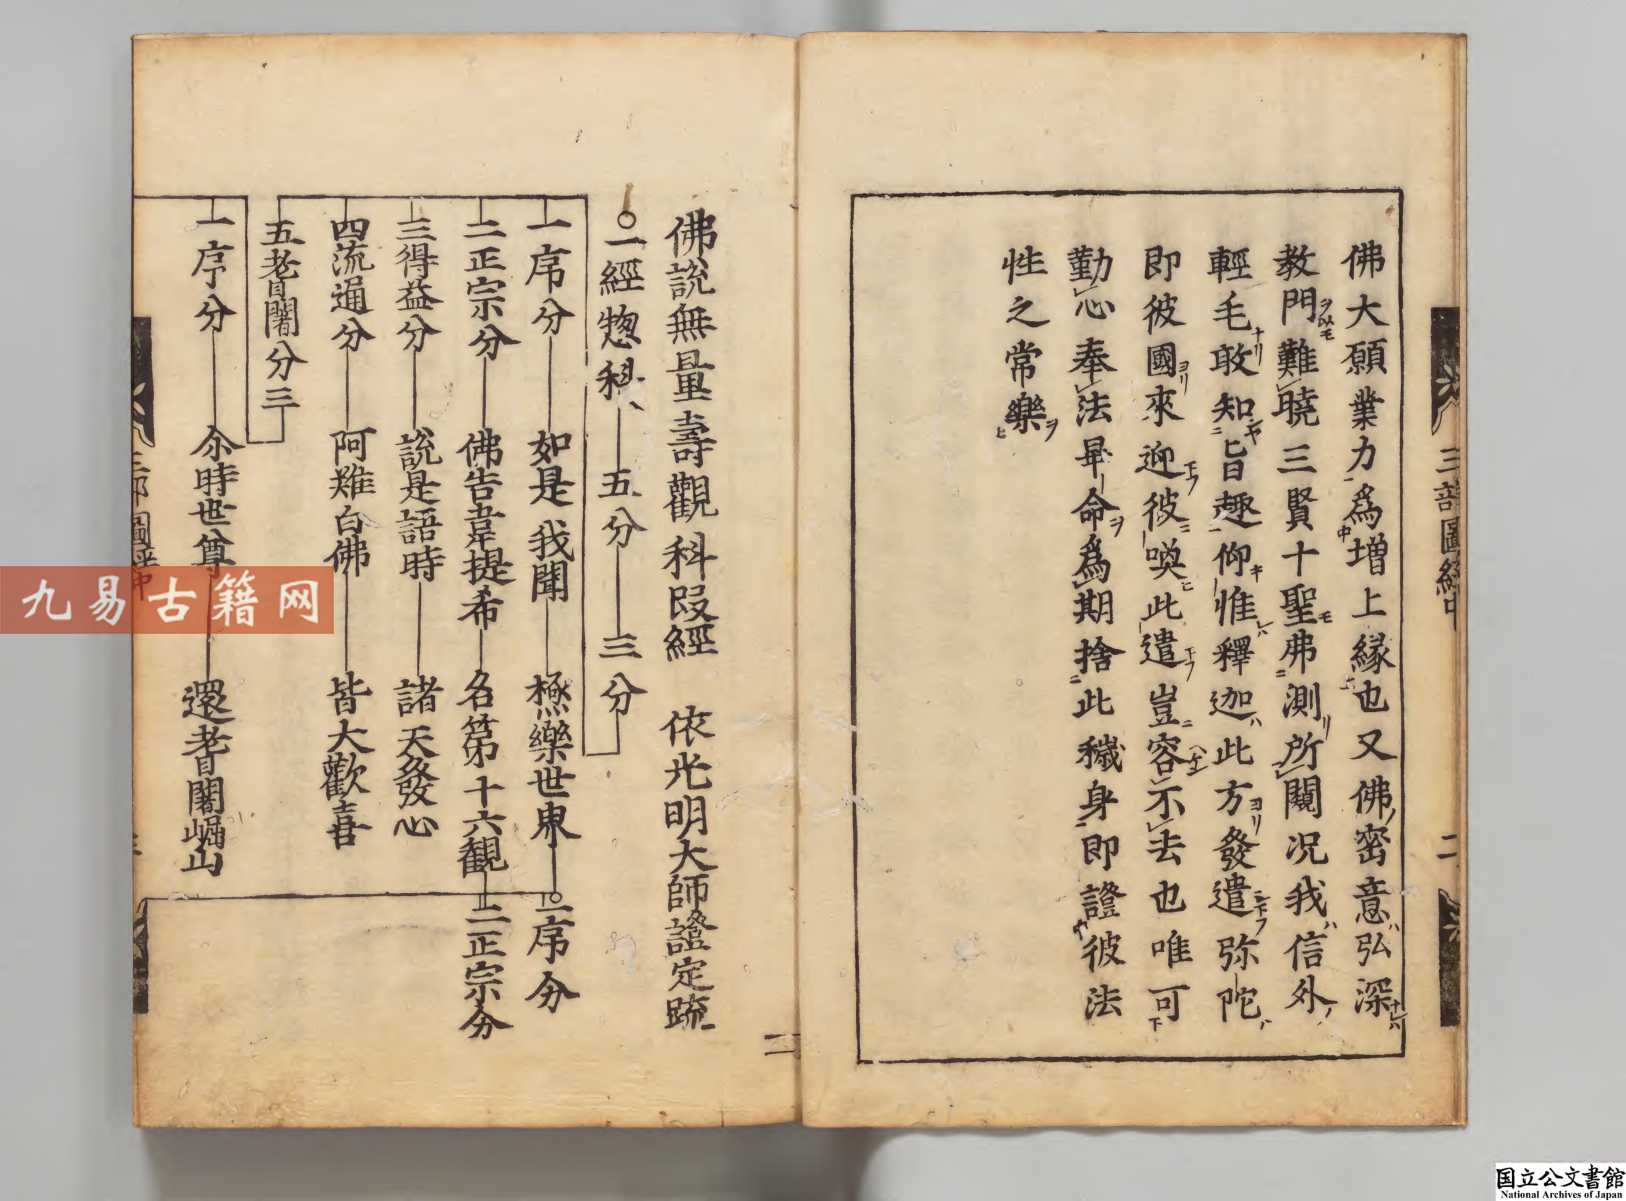 佛大願業力爲増上縁也又佛密意弘深
教門難曉三賢十聖弗測所闚况我信外
輕毛敢知旨趣仰惟釋迦此方發遣弥陀
即彼國來迎彼喚此遣豈容不去也唯可
勤心奉法畢命爲期捨此穢身即證彼法
性之常樂
佛說無量壽觀科段經 依光明大師證定䟽
○一經惣科 五分 三分
一序分 如是我聞 極樂世東 ○一序分
二正宗分 佛告韋提希 名第十六観 二正宗分
三得益分 說是語時 諸天發心
四流通分 阿難白佛 皆大歡喜
五耆闍分三
一序分 尒時世尊 還耆闍崛山
九易古籍网
国立公文書館
National Archives of Japan